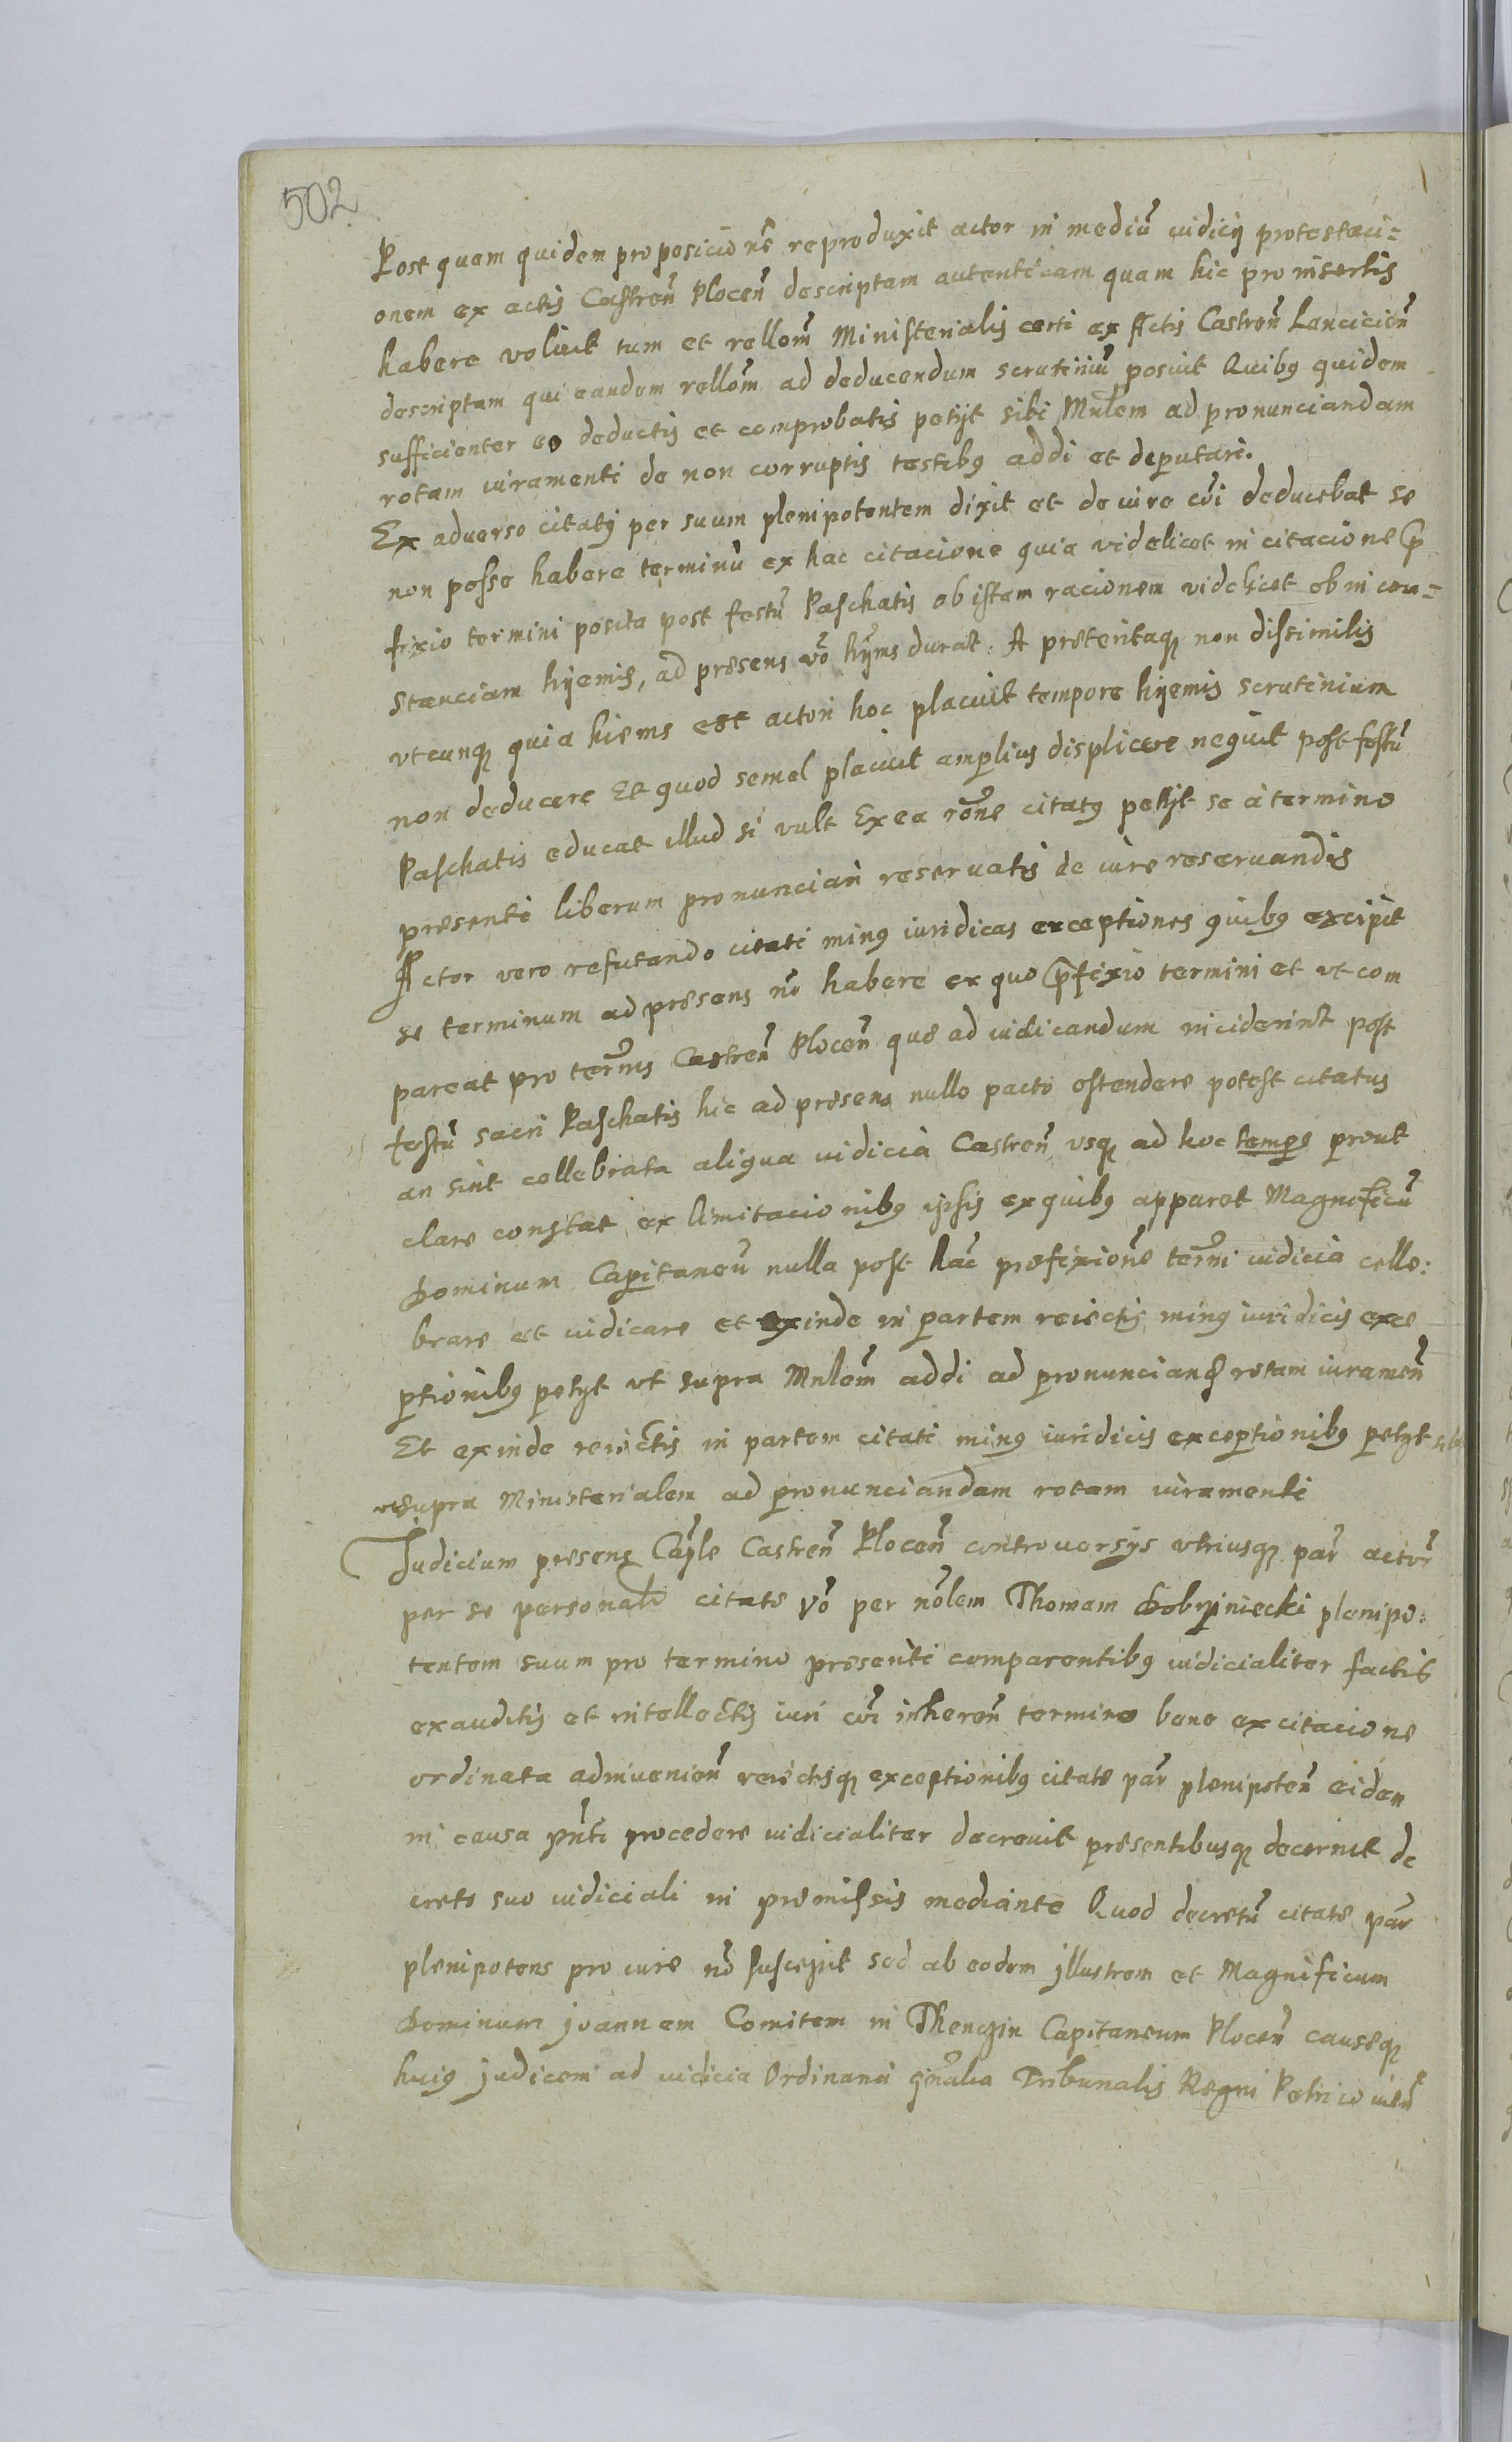 502
Post quam quidem proposicione͂ reproduxit actor in mediu͂ iudicij protestaci=
onem ex actis Castren͂ Plocen͂ descriptam autenticam quam hic pro insertis
habere voluit tum et rellom͂ Ministerialis certi ex Actis Castren͂ Lancicien͂
descriptam qui eandem rellom͂ ad deducendum scrutiniu͂ posuit Quibus quidem
sufficienter eo deductis et comprobatis petijt sibi Mnlem ad pronunciandam
rotam iuramenti de non corruptis testibus addi et deputari.
Ex aduerso citatus per suum plenipotentem dixit et de iure co͂i deducebat se
non posse habere terminu͂ ex hac citacione quia videlicet in citacione p͂
fixio termini posita post festu͂ Paschatis ob istam racionem videlicet ob in cou=
stanciam hijemis, ad presens vo͂ hijms durat. A preteritaq non dissimilis
vtcunq quia hiems est actori hoc placuit tempore hijemis scrutinium
non deducere Et quod semel placuit amplius displicere nequit post festu͂
Paschatis educat illud si vult Ex ea ro͂ne citatus petijt se a termino
presenti liberum pronunciari reseruatis de iure reseruandis
Actor vero refutando citati minus iuridicas exceptiones quibus excipit
se terminum ad presens no͂ habere ex quo p͂fixio termini et vt com
pareat pro termis Castren͂ Plocen͂ que ad iudicandum inciderint post
festu͂ sacri Paschatis hic ad presens nullo pacto ostendere potest citatus
an sint cellebrata aliqua iudicia Castren͂ vsq ad hoc tempus prout
clare constat ex limitacionibus ipsis ex quibus apparet Magnificu͂
Dominum Capitaneu͂ nulla post hac͂ prefixione͂ termi iudicia celle:
brare et iudicare et exinde in partem reiectis minus iuridicis exce
ptionibus petijt vt supra Mnlem͂ addi ad pronunciand rotam iuramen͂
Et exinde reiectis in partem citati minus iuridicis exceptionibus petijt sibi
vt supra Ministerialem ad pronunciandam rotam iuramenti
Judicium presens Cap͂le Castren͂ Plocen͂ controuersijs vtriusq par͂ actor͂
per se personalr citate vo͂ per no͂lem Thomam Dobrzniecki plenipo:
tentem suum pro termino presenti comparentibus iudicialiter factis
exauditis et intellectis iuri co͂i inheren͂ termino bene ex citacione
ordinata adinuenien͂ reiectisq exceptionibus citate par͂ plenipoten͂ eidem
in causa pn͂ti procedere iudicialiter decreuit presentibusq decernit de
creto suo iudiciali in premissis mediante Quod decretu͂ citate par͂
plenipotens pro iure no͂ suscepit sed ab eodem jllustrem et Magnificum
Dominum joannem Comitem in Thenczin Capitaneum Plocen͂ causeq
huius judicem ad iudicia Ordinaria gn͂alia Tribunalis Regni Petricouien͂